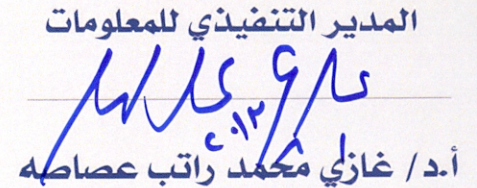 المدير التنفيذي للمعلومات
٢٠١٢
أ.د/ غازي محمد راتب عصاصه